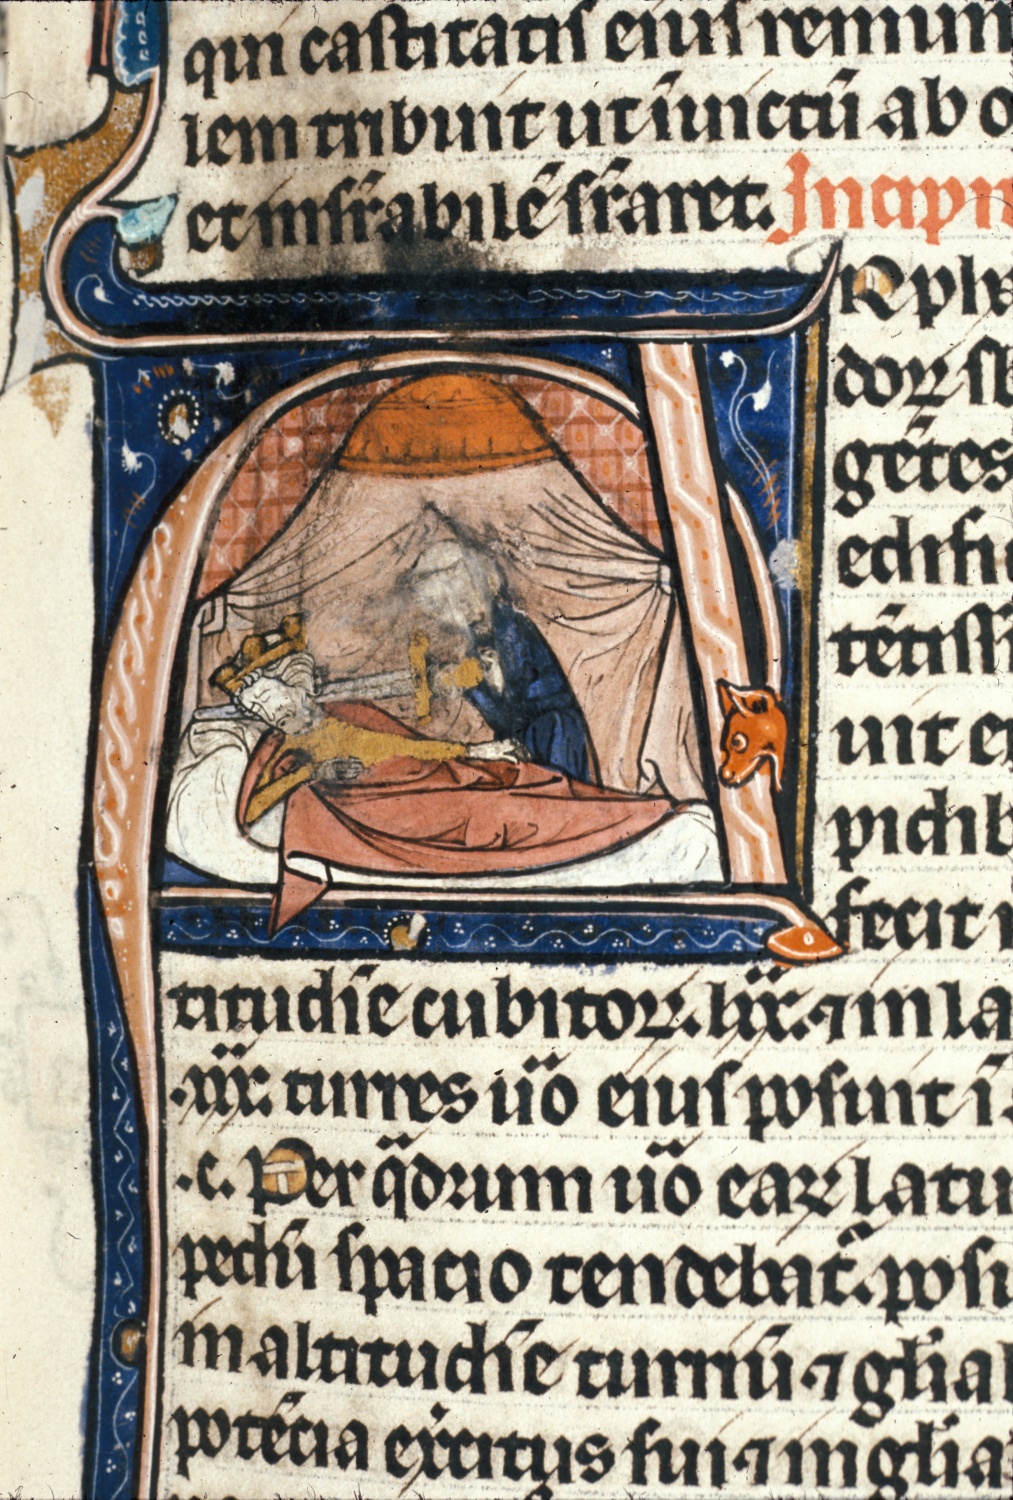 qui castitatis eius remun
lem tribuit ut īuictū ab o
et insr̄abilē sr̄aret. Incipi
ARpha
doꝝ sb
gētes
edifi
tētissi
uit e
pidib
fecit
titudīe cubitoꝝ. lxx. ⁊ in la
.xxx. turres u̅o eius posuit ī.
.c. Per q̄drum u̅o eaꝝ latu
pedū spacio tendebat᷑. posu
in altitudīe turriū ⁊ glia
potēcia ex̄citus sui ⁊ in glia